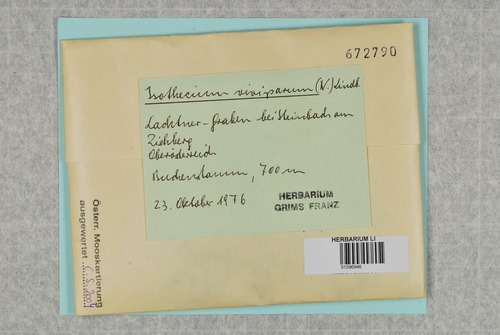 672790
Isothecium viviparum (N.) Lindb
Lachtner-graben bei Steinbach am
Ziehberg
Oberösterreich
Buchenstamm, 700 m
23. Oktober 1976
HERBARIUM
GRIMS FRANZ
HERBARIUM LI
Österr. Mooskartierung
ausgewertet